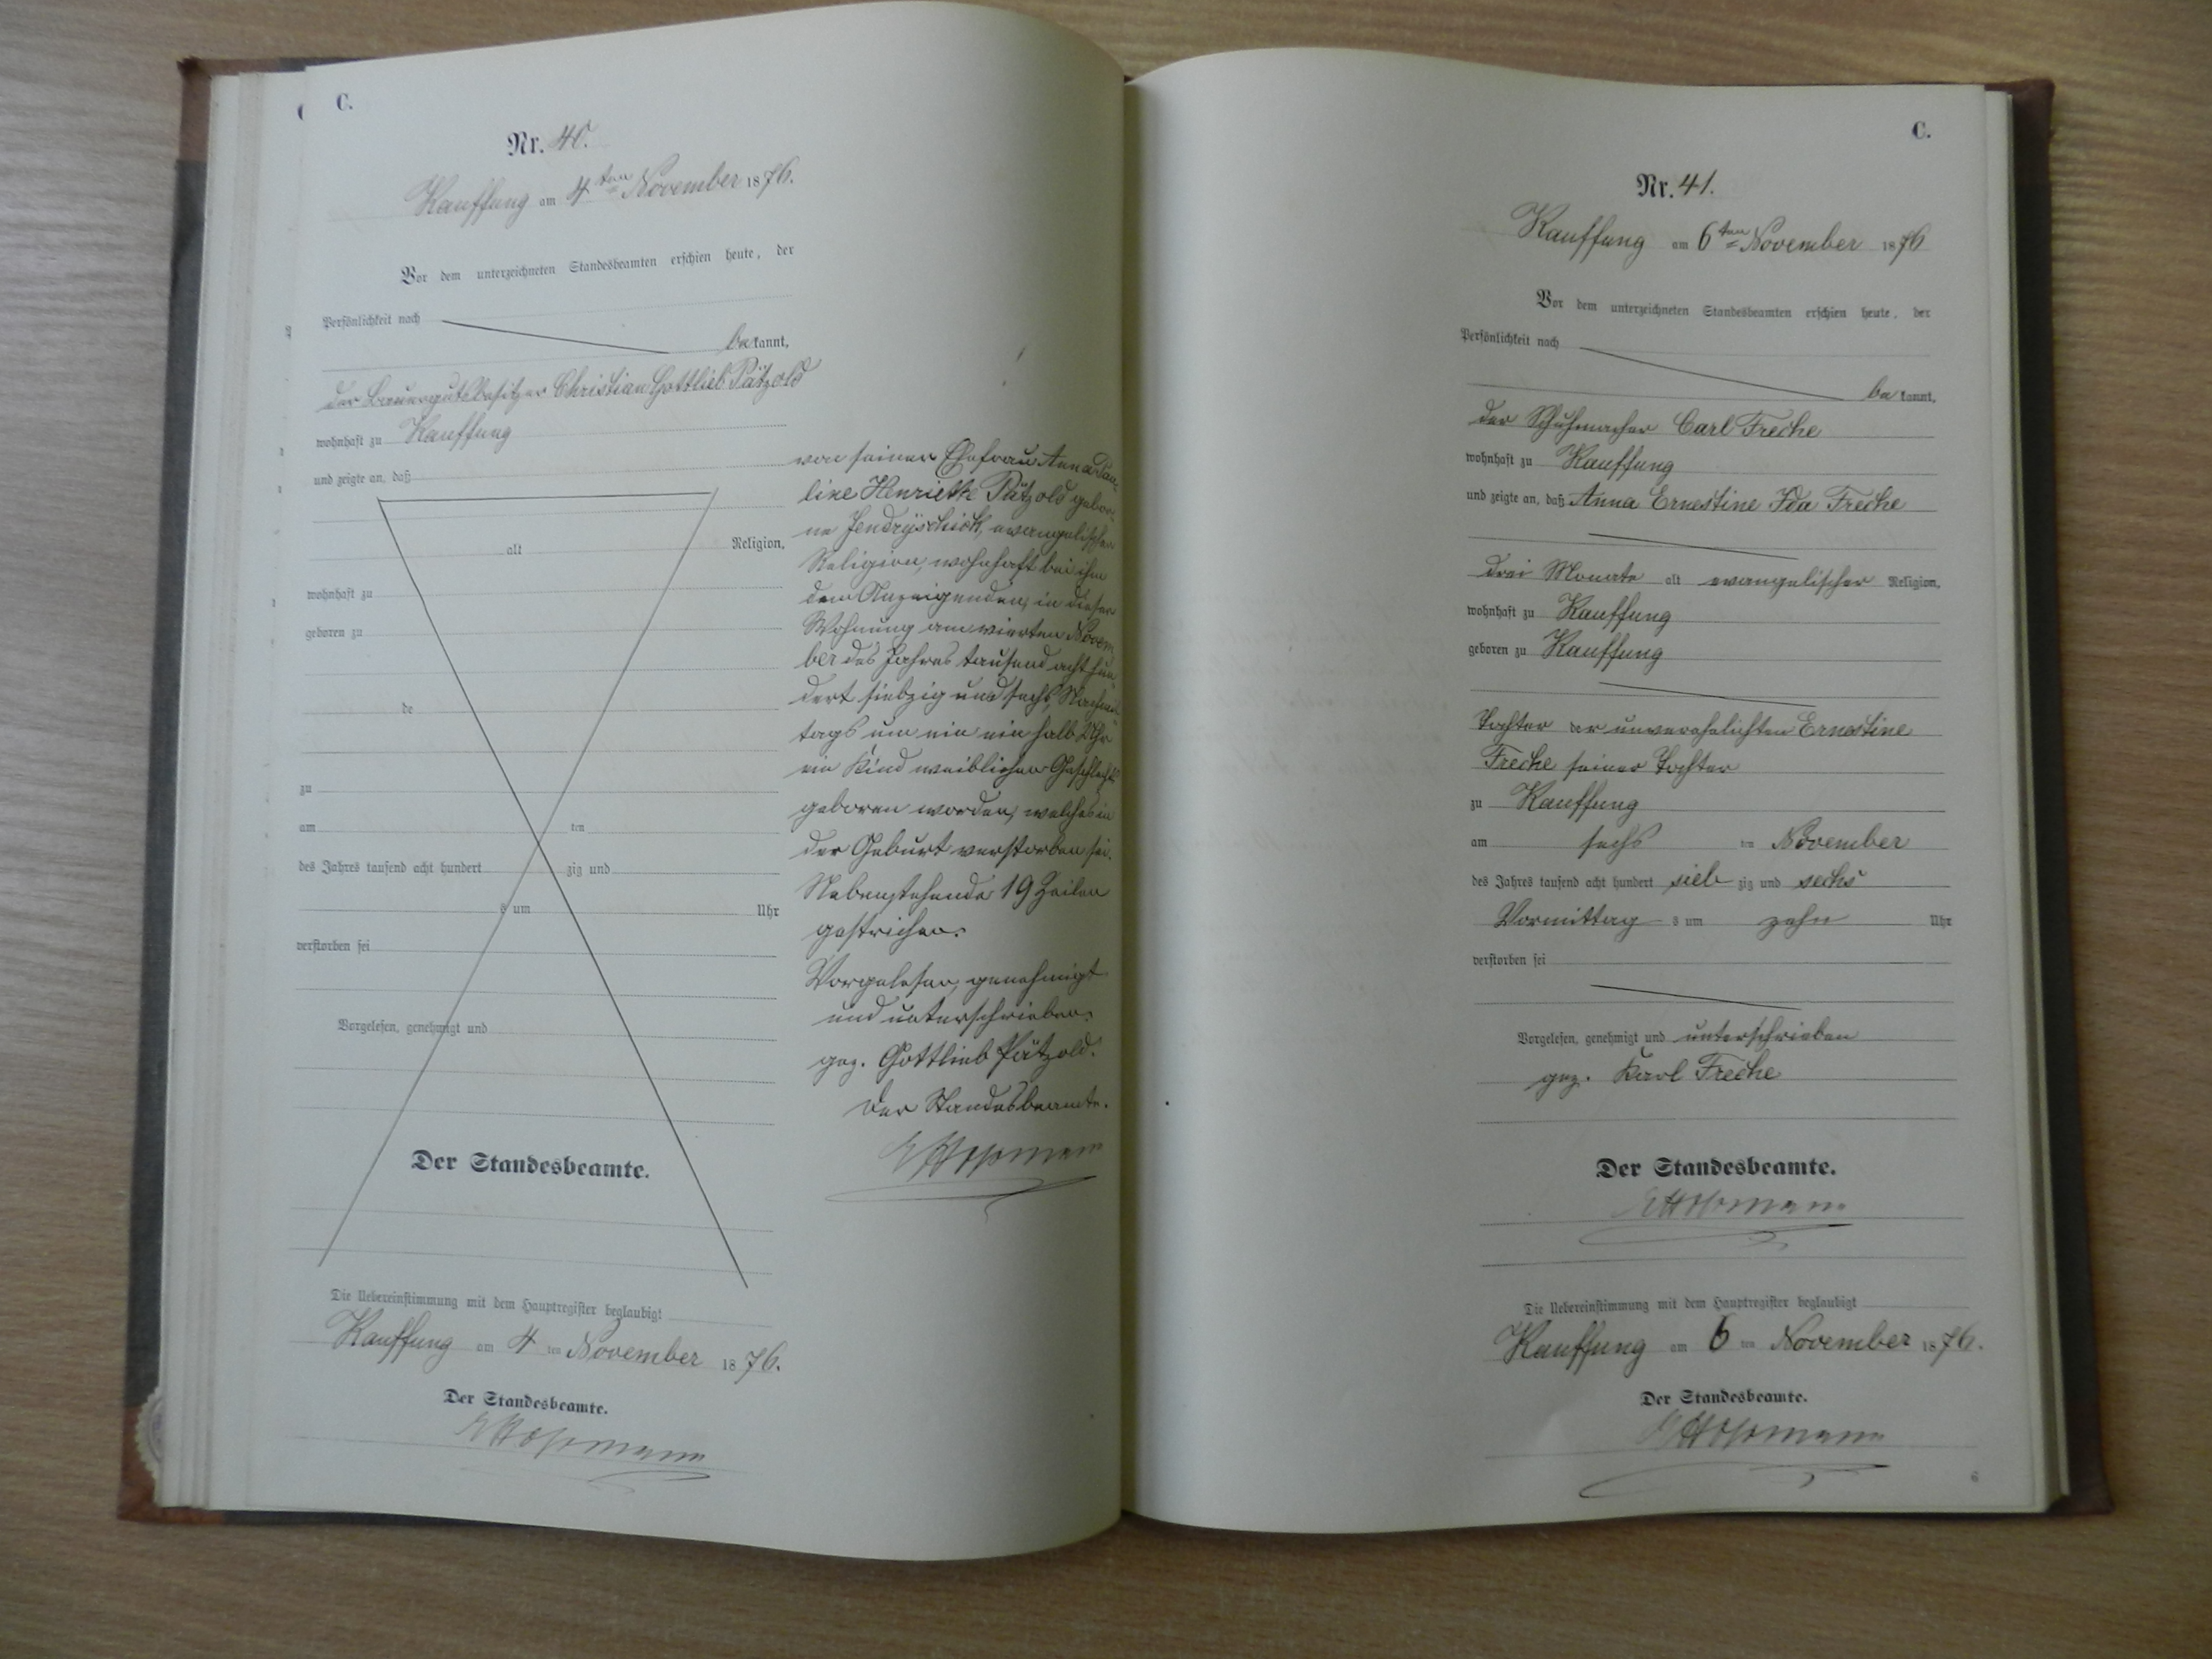 C.
Nr. 40.
Kauffung am 4ten November 1876.
Vor dem unterzeichneten Standesbeamten erschien heute, der
Persönlichkeit nach
bekannt,
der Bauergutsbesitzer Christian Gottlieb Pätzold
wohnhaft zu Kauffung
und zeigte an, daß
alt Religion,
wohnhaft zu
geboren zu
de
zu
am ten
des Jahres tausend acht hundert zig und
s um Uhr
verstorben sei
Vorgelesen, genehmigt und
Der Standesbeamte.
von seiner Ehefrau Anna Pau-
line Henriette Pätzold gebor-
ne Jendryschick, evangelischer
Religion, wohnhaft bei ihm
dem Anzeigenden, in dieser
Wohnung am vierten Novem
ber des Jahres tausend acht hun
dert siebzig und sechs, Nachmit
tags um ein ein halb Uhr
ein Kind weiblichen Geschlechts
geboren worden, welches in
der Geburt verstorben sei.
Nebenstehende 19 Zeilen
gestrichen.
Vorgelesen, genehmigt
und unterschrieben.
gez. Gottlieb Pätzold.
Der Standesbeamte.
Die Uebereinstimmung mit dem Hauptregister beglaubigt
Kauffung am 4 ten November 1876.
Der Standesbeamte.
C.
Nr. 41.
Kauffung am 6ten November 1876
Vor dem unterzeichneten Standesbeamten erschien heute, der
Persönlichkeit nach
bekannt,
der Schuhmacher Carl Freche
wohnhaft zu Kauffung
und zeigte an, daß Anna Ernestine Ida Freche
drei Monate alt evangelischer Religion,
wohnhaft zu Kauffung
geboren zu Kauffung
Tochter der unverehelichten Ernestine
Freche seiner Tochter
zu Kauffung
am sechs ten November
des Jahres tausend acht hundert sieb zig und sechs
Vormittag s um zehn Uhr
verstorben sei
Vorgelesen, genehmigt und unterschrieben
gez. Karl Freche
Der Standesbeamte.
Die Uebereinstimmung mit dem Hauptregister beglaubigt
Kauffung am 6 ten November 1876.
Der Standesbeamte.
6